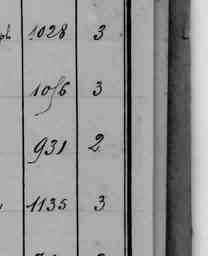 1028 3
1056 3
931 2
1135 3